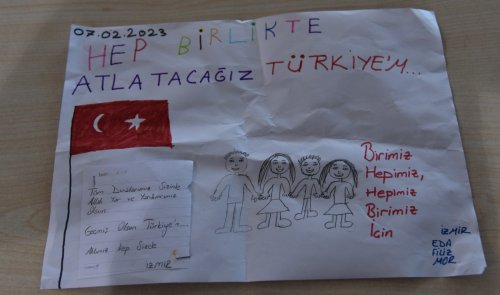 07.02.2023
HEP BİRLİKTE
ATLATACAĞIZ TÜRKİYE'M...
Tüm Dualarımız Sizinle
Allah Yar ve Yardımcımız
Olsun.
Geçmiş Olsun Türkiye'm...
Aklımız Hep Sizde
İZMİR
Birimiz
Hepimiz,
Hepimiz
Birimiz
İçin
İZMİR
EDA
FİLİZ
MOR